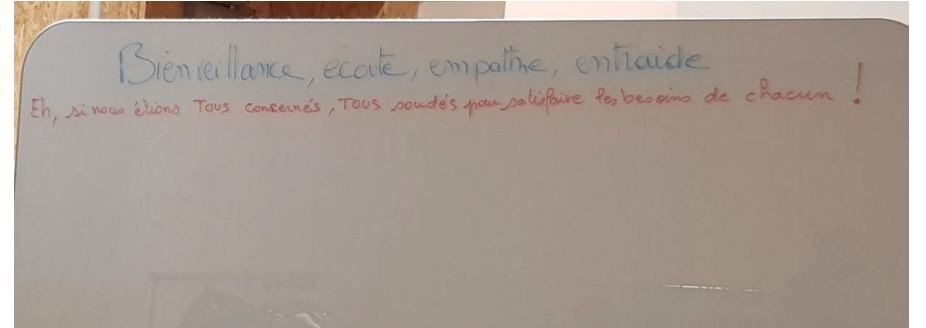 Bienveillance, ecoute, empathie, entraide
Eh, si nous étions Tous concernés, Tous soudés pour satisfaire les besoins de chacun !